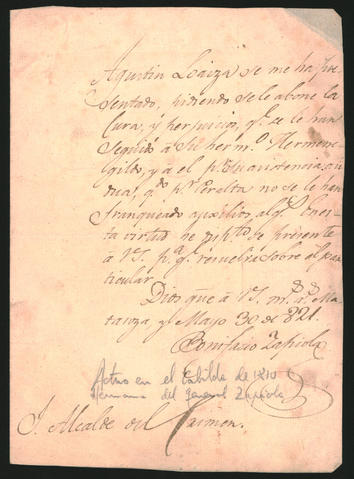 Agustin Loaiza se me ha pre-
sentado, pidiendo se le abone la
Cura, y perjuicio, qe. se le han
seguido á su herm.o Hermene-
gildo, y a el pr. su asistencia,
qdo pr. Peralta no se le han
franqueado aucilios algs. En es-
ta virtud he disp.to se presente
á VS. pa. qe. resuelva sobre el par-
ticular
Dios gue. á VS. ms. as. Ma-
tanza, y Mayo 30 de 821.
Bonifacio Zapiola
Actuo en el Cabildo de 1810
Hermano del General Zapiola
S. Alcalde del